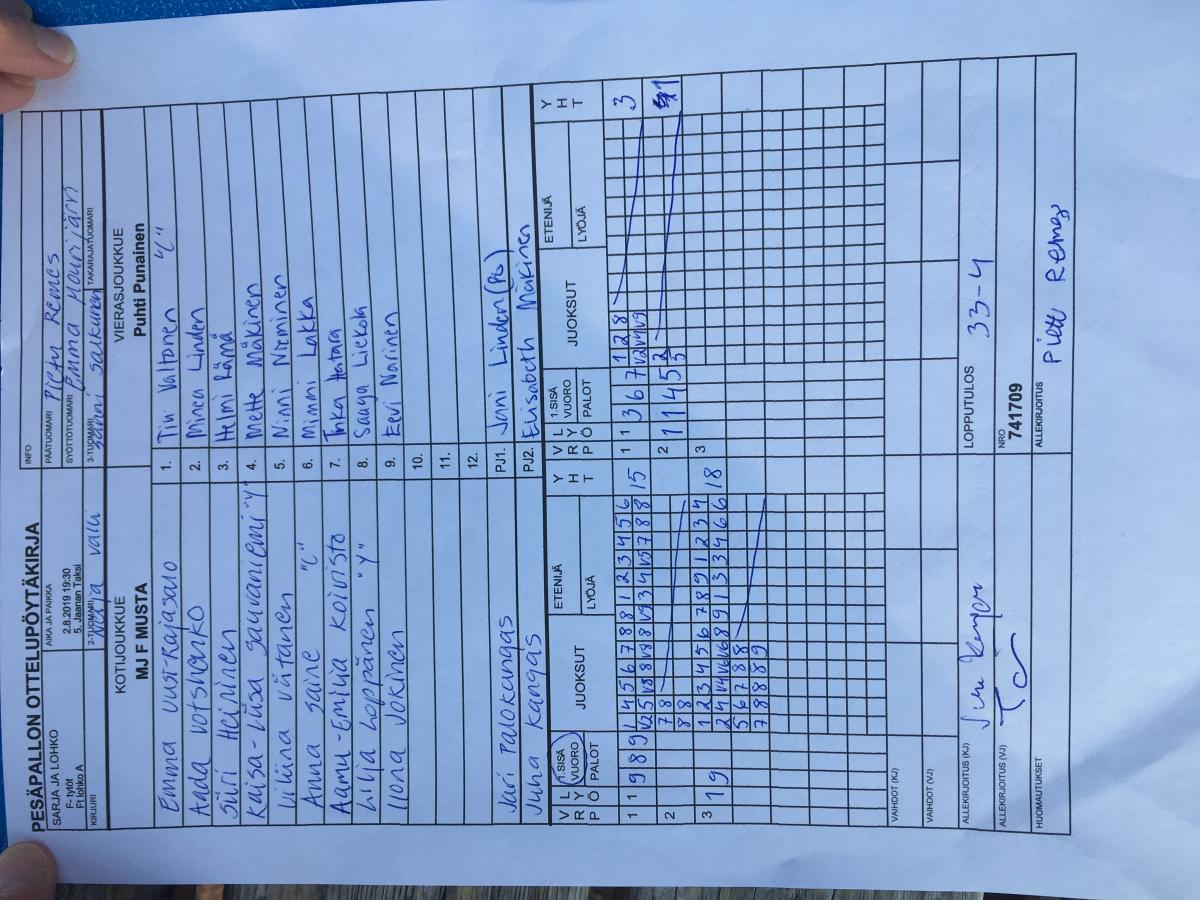 PESÄPALLON OTTELUPÖYTÄKIRJA
SARJA JA LOHKO
F- tytöt
Ft lohko A
AIKA JA PAIKKA
2.8.2019 19:30
5. Jaanan Taksi
INFO
PÄÄTUOMARI Pietu Remes
SYÖTTÖTUOMARI Emma
KIRJURI
2-TUOMARI
3-TUOMARI
TAKARAJATUOMARI
KOTIJOUKKUE
MJ F MUSTA
VIERASJOUKKUE
Puhti Punainen
Emma Uusi-Rajasalo 1. Tiu Valtonen "C"
Anda 2. Minea Linden
Siiri Heininen 3. Helmi Rämä
Kaisa-Liisa Sauvaniemi "Y" 4. Mette Mäkinen
Viliina Virtanen 5. Ninni Nieminen
Anna Saine "C" 6. Mimmi Lakka
Aamu-Emilia Koivisto 7. Inka
Lilja Loppänen "Y" 8. Saaga Liekola
Ilona Jokinen 9. Eevi Norinen
10.
11.
12.
Jari Palokangas PJ1. Jani Linden (PG)
Juha Kangas PJ2. Elisabeth Mäkinen
V R P L Y Ö 1.SISÄ VUORO PALOT JUOKSUT ETENIJÄ LYÖJÄ Y H T V R P L Y Ö 1.SISÄ VUORO PALOT JUOKSUT ETENIJÄ LYÖJÄ Y H T
1 1 9 8 9 1 4 5 6 7 8 8 1 2 3 4 5 6 15 1 1 3 6 7 1 2 8 3
V2 5 V8 8 V8 8 V9 3 4 V5 7 8 8 V2 V4 V9
2 7 8 2 1 1 4 5 2 1
8 8 5
3 1 9 1 2 3 4 5 6 7 8 9 1 2 3 4 18 3
2 4 V4 V6 V6 8 9 1 3 3 4 6 6
5 6 7 8 8
7 8 8 8 9
VAIHDOT (KJ)
VAIHDOT (VJ)
ALLEKIRJOITUS (KJ) LOPPUTULOS 33-4
ALLEKIRJOITUS (VJ) NRO
741709
HUOMAUTUKSET ALLEKIRJOITUS Piett Remes